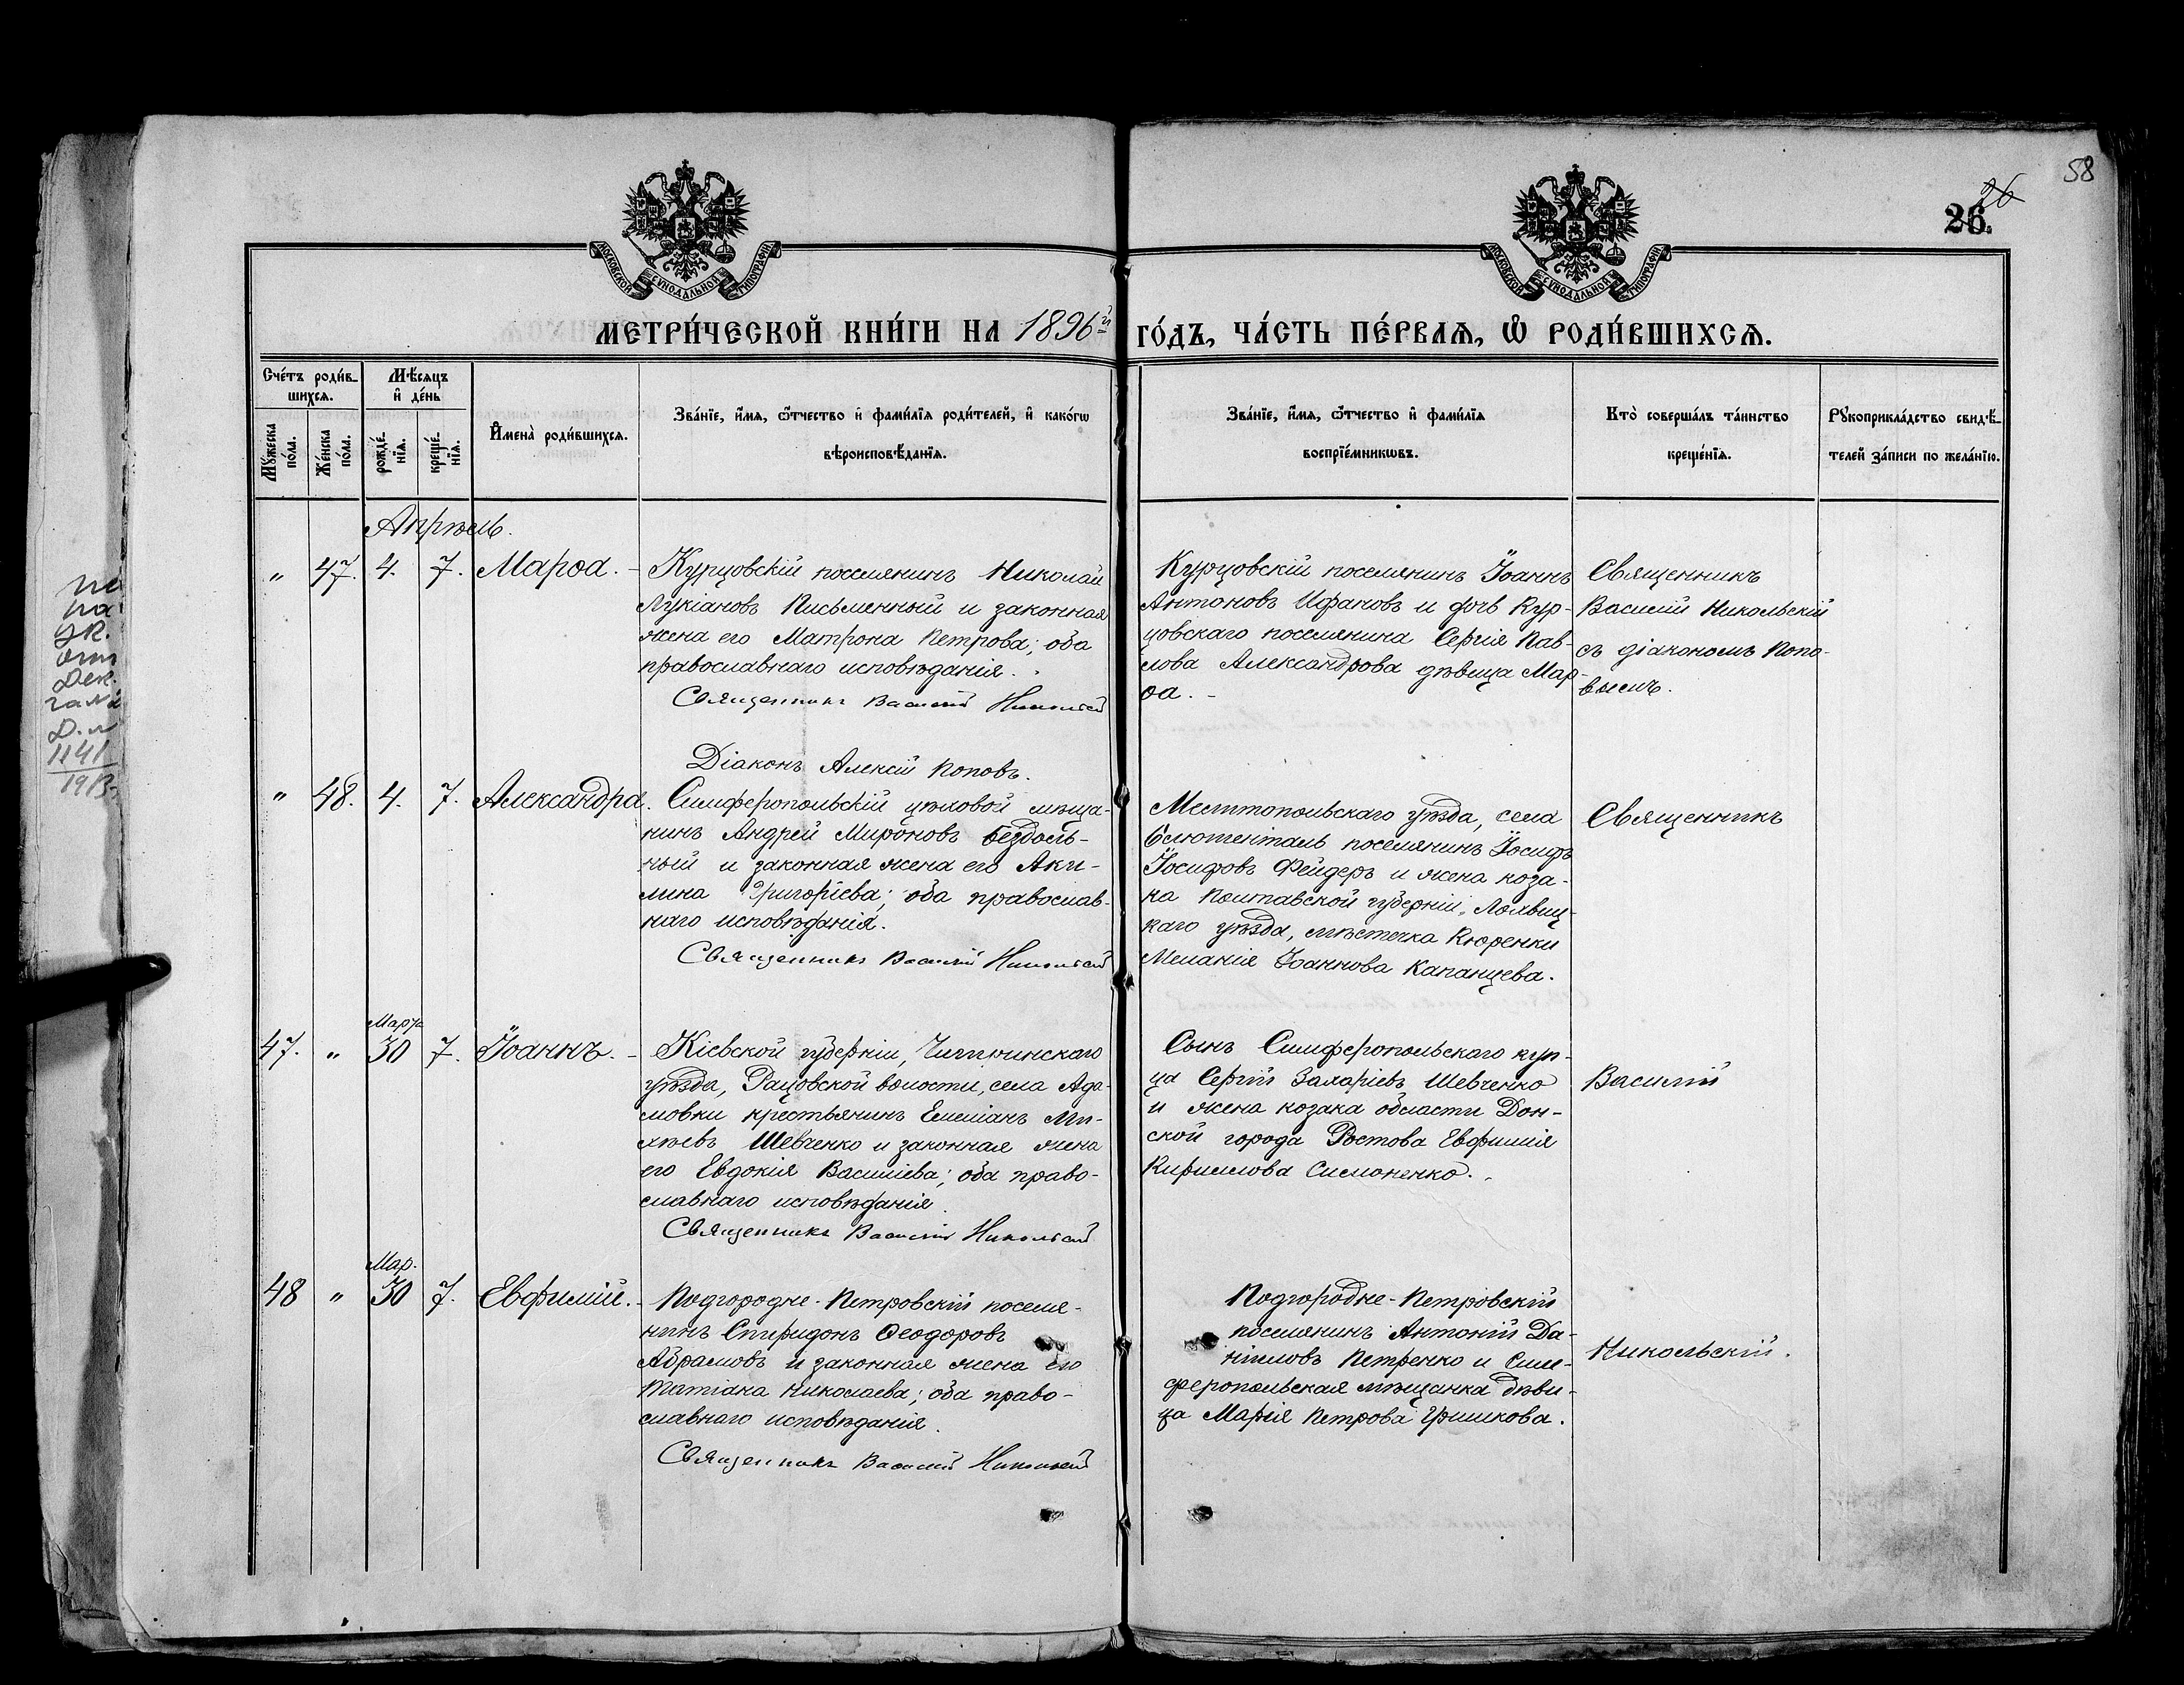 58
26
26.
МОСКОВСКОЙ СѴНОДАЛЬНОЙ ТИПОГРАФІИ
МОСКОВСКОЙ СѴНОДАЛЬНОЙ ТИПОГРАФІИ
МЕТРИ́ЧЕСКОЙ КНИ́ГИ НА 1896й ГО́ДЪ, ЧА́СТЬ ПЕ́РВАѦ, Ѡ҆ РОДИ́ВШИХСѦ.
Сче́тъ роди́в-
шихсѧ.
Мѣ́сѧцъ
и҆ де́нь
Мꙋ́жеска
по́ла.
Же́нска
по́ла.
рожде́-
нїѧ.
креще́-
нїѧ.
И҆мена̀ роди́вшихсѧ.
Зва́нїе, и҆́мѧ, ѻ҆́тчество и҆ фами́лїѧ роди́телей, и҆ како́гѡ
вѣроисповѣ́данїѧ.
Зва́нїе, и҆́мѧ, ѻ҆́тчество и҆ фами́лїѧ
воспрїе́мникѡвъ.
Кто̀ соверша́лъ та́инство
креще́нїѧ.
Рꙋкоприкла́дство свидѣ́-
телей за́писи по жела́нїю.
Апрѣль.
„ 47. 4. 7. Марѳа. –
Курцовскій поселянинъ Николай
Лукіановъ Письменный и законная
жена его Матрона Петрова; оба
православнаго исповѣданія.
Священникъ Василій Никольскій
Діаконъ Алексій Поповъ.
Курцовскій поселянинъ Іоаннъ
Антоновъ и дочь Кур-
цовскаго поселянина Сергія Пав-
лова Александрова дѣвица Мар-
ѳа. –
Священникъ
Василій Никольскій
съ діакономъ Попо-
вымъ.
„ 48. 4. 7. Александра.
Симферопольскій цѣховой мѣща-
нинъ Андрей Мироновъ Бездоль-
ный и законная жена его Аки-
лина Григоріева; оба православ-
наго исповѣданія.
Священникъ Василій Никольскій
Мелитопольскаго уѣзда, села
Блюменталь поселянинъ Іосифъ
Іосифовъ Фейдеръ и жена коза-
ка Полтавской губерніи, Лохвиц-
каго уѣзда, мѣстечка Кюренки
Меланія Іоаннова Капанцева.
Священникъ
47. „ Март. 30 7. Іоаннъ. –
Кіевской губерніи, Чигиринскаго
уѣзда, Рацовской волости, села Ада-
мовки крестьянинъ Емеліанъ Ми-
хѣевъ Шевченко и законная жена
его Евдокія Василіева; оба право-
славнаго исповѣданія.
Священникъ Василій Никольскій
Сынъ Симферопольскаго куп-
ца Сергій Захаріевъ Шевченко
и жена козака области Дон-
ской города Ростова Евфимія
Кириллова Симоненко.
Василій
48 „ Мар. 30 7. Евфимій. –
Подгородне-Петровскій поселя-
нинъ Спиридонъ Ѳеодоровъ
Абрамовъ и законная жена его
Татіана Николаева; оба право-
славнаго исповѣданія.
Священникъ Василій Никольскій
Подгородне-Петровскій
поселянинъ Антоній Да-
ніиловъ Петренко и Сим-
феропольская мѣщанка дѣви-
ца Марія Петрова Гришкова.
Никольскій.
ук.
Дек.
1141
1913